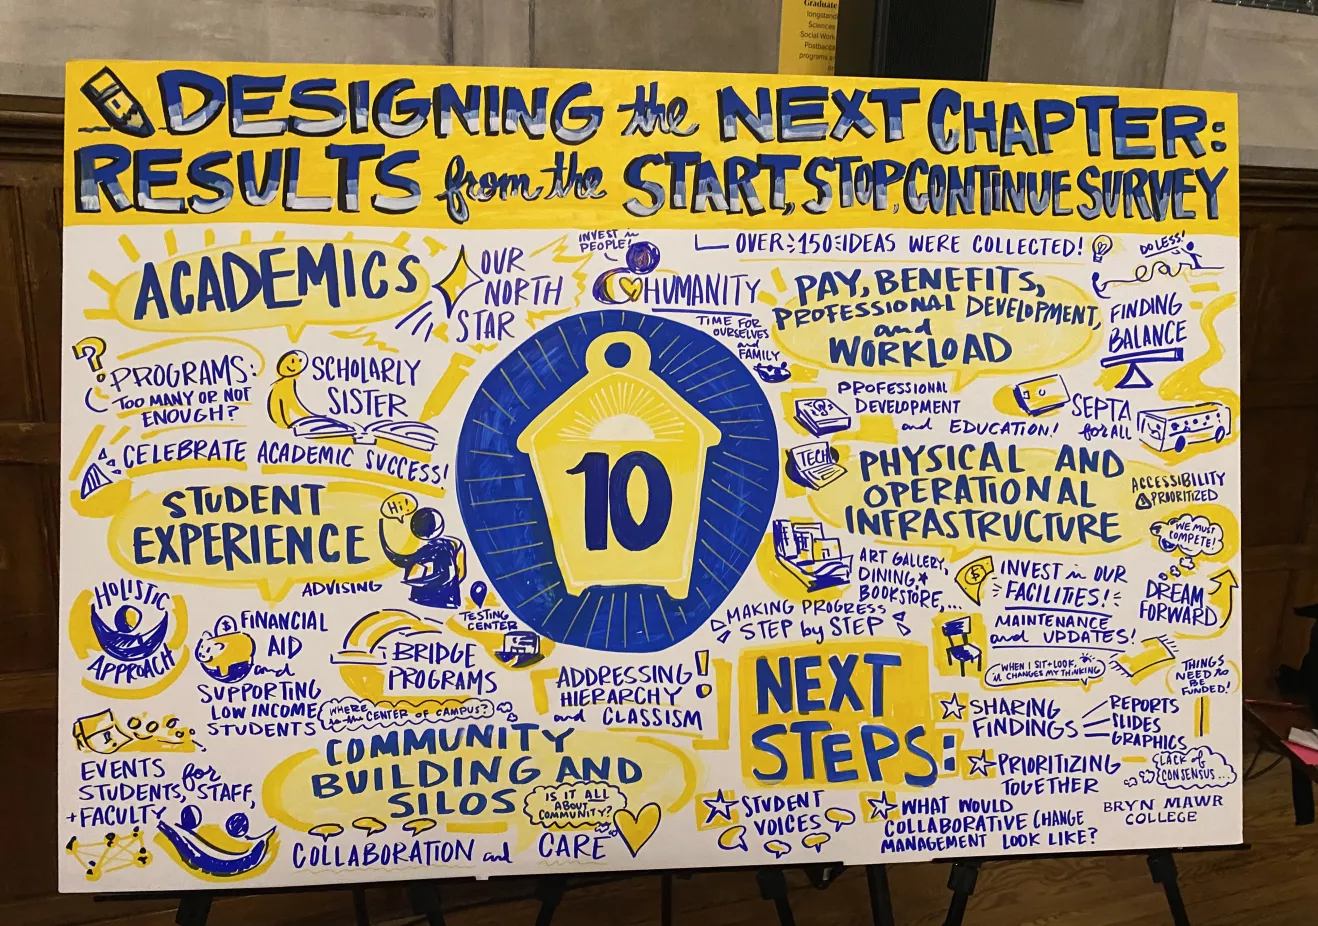 Graduate
longstand
Sciences
Social Work
Postbacca
programs a
DESIGNING the NEXT CHAPTER:
RESULTS from the START, STOP, CONTINUE SURVEY
ACADEMICS
OUR
NORTH
STAR
INVEST in
PEOPLE!
HUMANITY
TIME FOR
OURSELVES
and
FAMILY
OVER 150 IDEAS WERE COLLECTED!
DO LESS!
PAY, BENEFITS,
PROFESSIONAL DEVELOPMENT,
and
WORKLOAD
FINDING
BALANCE
?
PROGRAMS:
TOO MANY OR NOT
ENOUGH?
SCHOLARLY
SISTER
CELEBRATE ACADEMIC SUCCESS!
PROFESSIONAL
DEVELOPMENT
and EDUCATION!
SEPTA
for ALL
10
STUDENT
EXPERIENCE
Hi!
ADVISING
TECH
PHYSICAL AND
OPERATIONAL
INFRASTRUCTURE
ACCESSIBILITY
PRIORITIZED
WE MUST
COMPETE!
DREAM
FORWARD
ART GALLERY,
DINING,
BOOKSTORE,...
$
INVEST in OUR
FACILITIES!
MAINTENANCE
and UPDATES!
WHEN I SIT + LOOK,
it CHANGES MY THINKING
THINGS
NEED to
BE
FUNDED!
HOLISTIC
APPROACH
$
FINANCIAL
AID
and
SUPPORTING
LOW INCOME
STUDENTS
BRIDGE
PROGRAMS
TESTING
CENTER
WHERE
is the CENTER OF CAMPUS?
MAKING PROGRESS
STEP by STEP
ADDRESSING
HIERARCHY
and CLASSISM
!
EVENTS for
STUDENTS, STAFF,
+ FACULTY
COMMUNITY
BUILDING AND
SILOS
IS IT ALL
ABOUT
COMMUNITY?
COLLABORATION and CARE
NEXT
STEPS:
SHARING
FINDINGS
REPORTS
SLIDES
GRAPHICS
PRIORITIZING
TOGETHER
LACK of
CONSENSUS...
STUDENT
VOICES
WHAT WOULD
COLLABORATIVE CHANGE
MANAGEMENT LOOK LIKE?
BRYN MAWR
COLLEGE